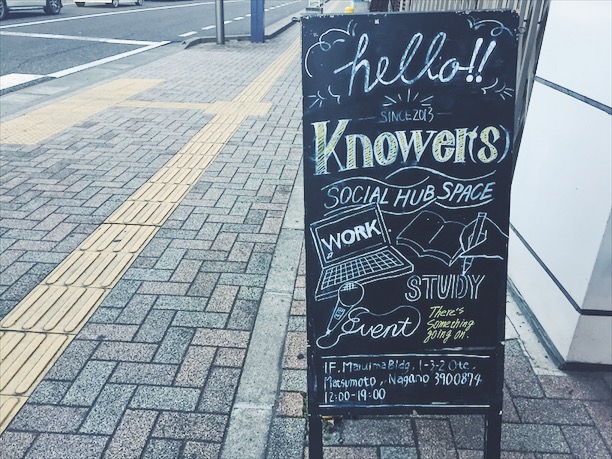 hello!!
SINCE 2013
Knower(s)
SOCIAL HUB SPACE
WORK
STUDY
Event
There's
Something
going on.
1F, Maruima Bldg, 1-3-2 Ote,
Matsumoto, Nagano 3900874
12:00-19:00